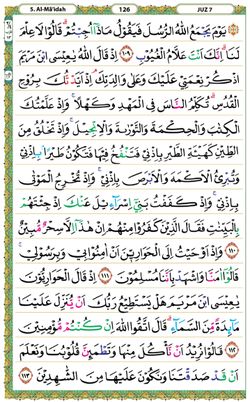 5. Al-Mâ'idah 126 JUZ 7
يَوْمَ يَجْمَعُ اللّٰهُ الرُّسُلَ فَيَقُوْلُ مَاذَآ اُجِبْتُمْ ۗ قَالُوْا لَا عِلْمَ
لَنَا ۗ اِنَّكَ اَنْتَ عَلَّامُ الْغُيُوْبِ ١٠٩ اِذْ قَالَ اللّٰهُ يٰعِيْسَى ابْنَ مَرْيَمَ
اذْكُرْ نِعْمَتِيْ عَلَيْكَ وَعَلٰى وَالِدَتِكَ ۘ اِذْ اَيَّدْتُّكَ بِرُوْحِ
الْقُدُسِ ۗ تُكَلِّمُ النَّاسَ فِى الْمَهْدِ وَكَهْلًا ۚ وَاِذْ عَلَّمْتُكَ
الْكِتٰبَ وَالْحِكْمَةَ وَالتَّوْرٰىةَ وَالْاِنْجِيْلَ ۚ وَاِذْ تَخْلُقُ مِنَ
الطِّيْنِ كَهَيْـَٔةِ الطَّيْرِ بِاِذْنِيْ فَتَنْفُخُ فِيْهَا فَتَكُوْنُ طَيْرًاۢ بِاِذْنِيْ
وَتُبْرِئُ الْاَكْمَهَ وَالْاَبْرَصَ بِاِذْنِيْ ۚ وَاِذْ تُخْرِجُ الْمَوْتٰى
بِاِذْنِيْ ۚ وَاِذْ كَفَفْتُ بَنِيْٓ اِسْرَاۤءِيْلَ عَنْكَ اِذْ جِئْتَهُمْ
بِالْبَيِّنٰتِ فَقَالَ الَّذِيْنَ كَفَرُوْا مِنْهُمْ اِنْ هٰذَآ اِلَّا سِحْرٌ مُّبِيْنٌ
١١٠ وَاِذْ اَوْحَيْتُ اِلَى الْحَوَارِيّٖنَ اَنْ اٰمِنُوْا بِيْ وَبِرَسُوْلِيْ ۚ
قَالُوْٓا اٰمَنَّا وَاشْهَدْ بِاَنَّنَا مُسْلِمُوْنَ ١١١ اِذْ قَالَ الْحَوَارِيُّوْنَ
يٰعِيْسَى ابْنَ مَرْيَمَ هَلْ يَسْتَطِيْعُ رَبُّكَ اَنْ يُّنَزِّلَ عَلَيْنَا
مَاۤىِٕدَةً مِّنَ السَّمَاۤءِ ۗ قَالَ اتَّقُوا اللّٰهَ اِنْ كُنْتُمْ مُّؤْمِنِيْنَ
١١٢ قَالُوْا نُرِيْدُ اَنْ نَّأْكُلَ مِنْهَا وَتَطْمَىِٕنَّ قُلُوْبُنَا وَنَعْلَمَ
اَنْ قَدْ صَدَقْتَنَا وَنَكُوْنَ عَلَيْهَا مِنَ الشّٰهِدِيْنَ ١١٣